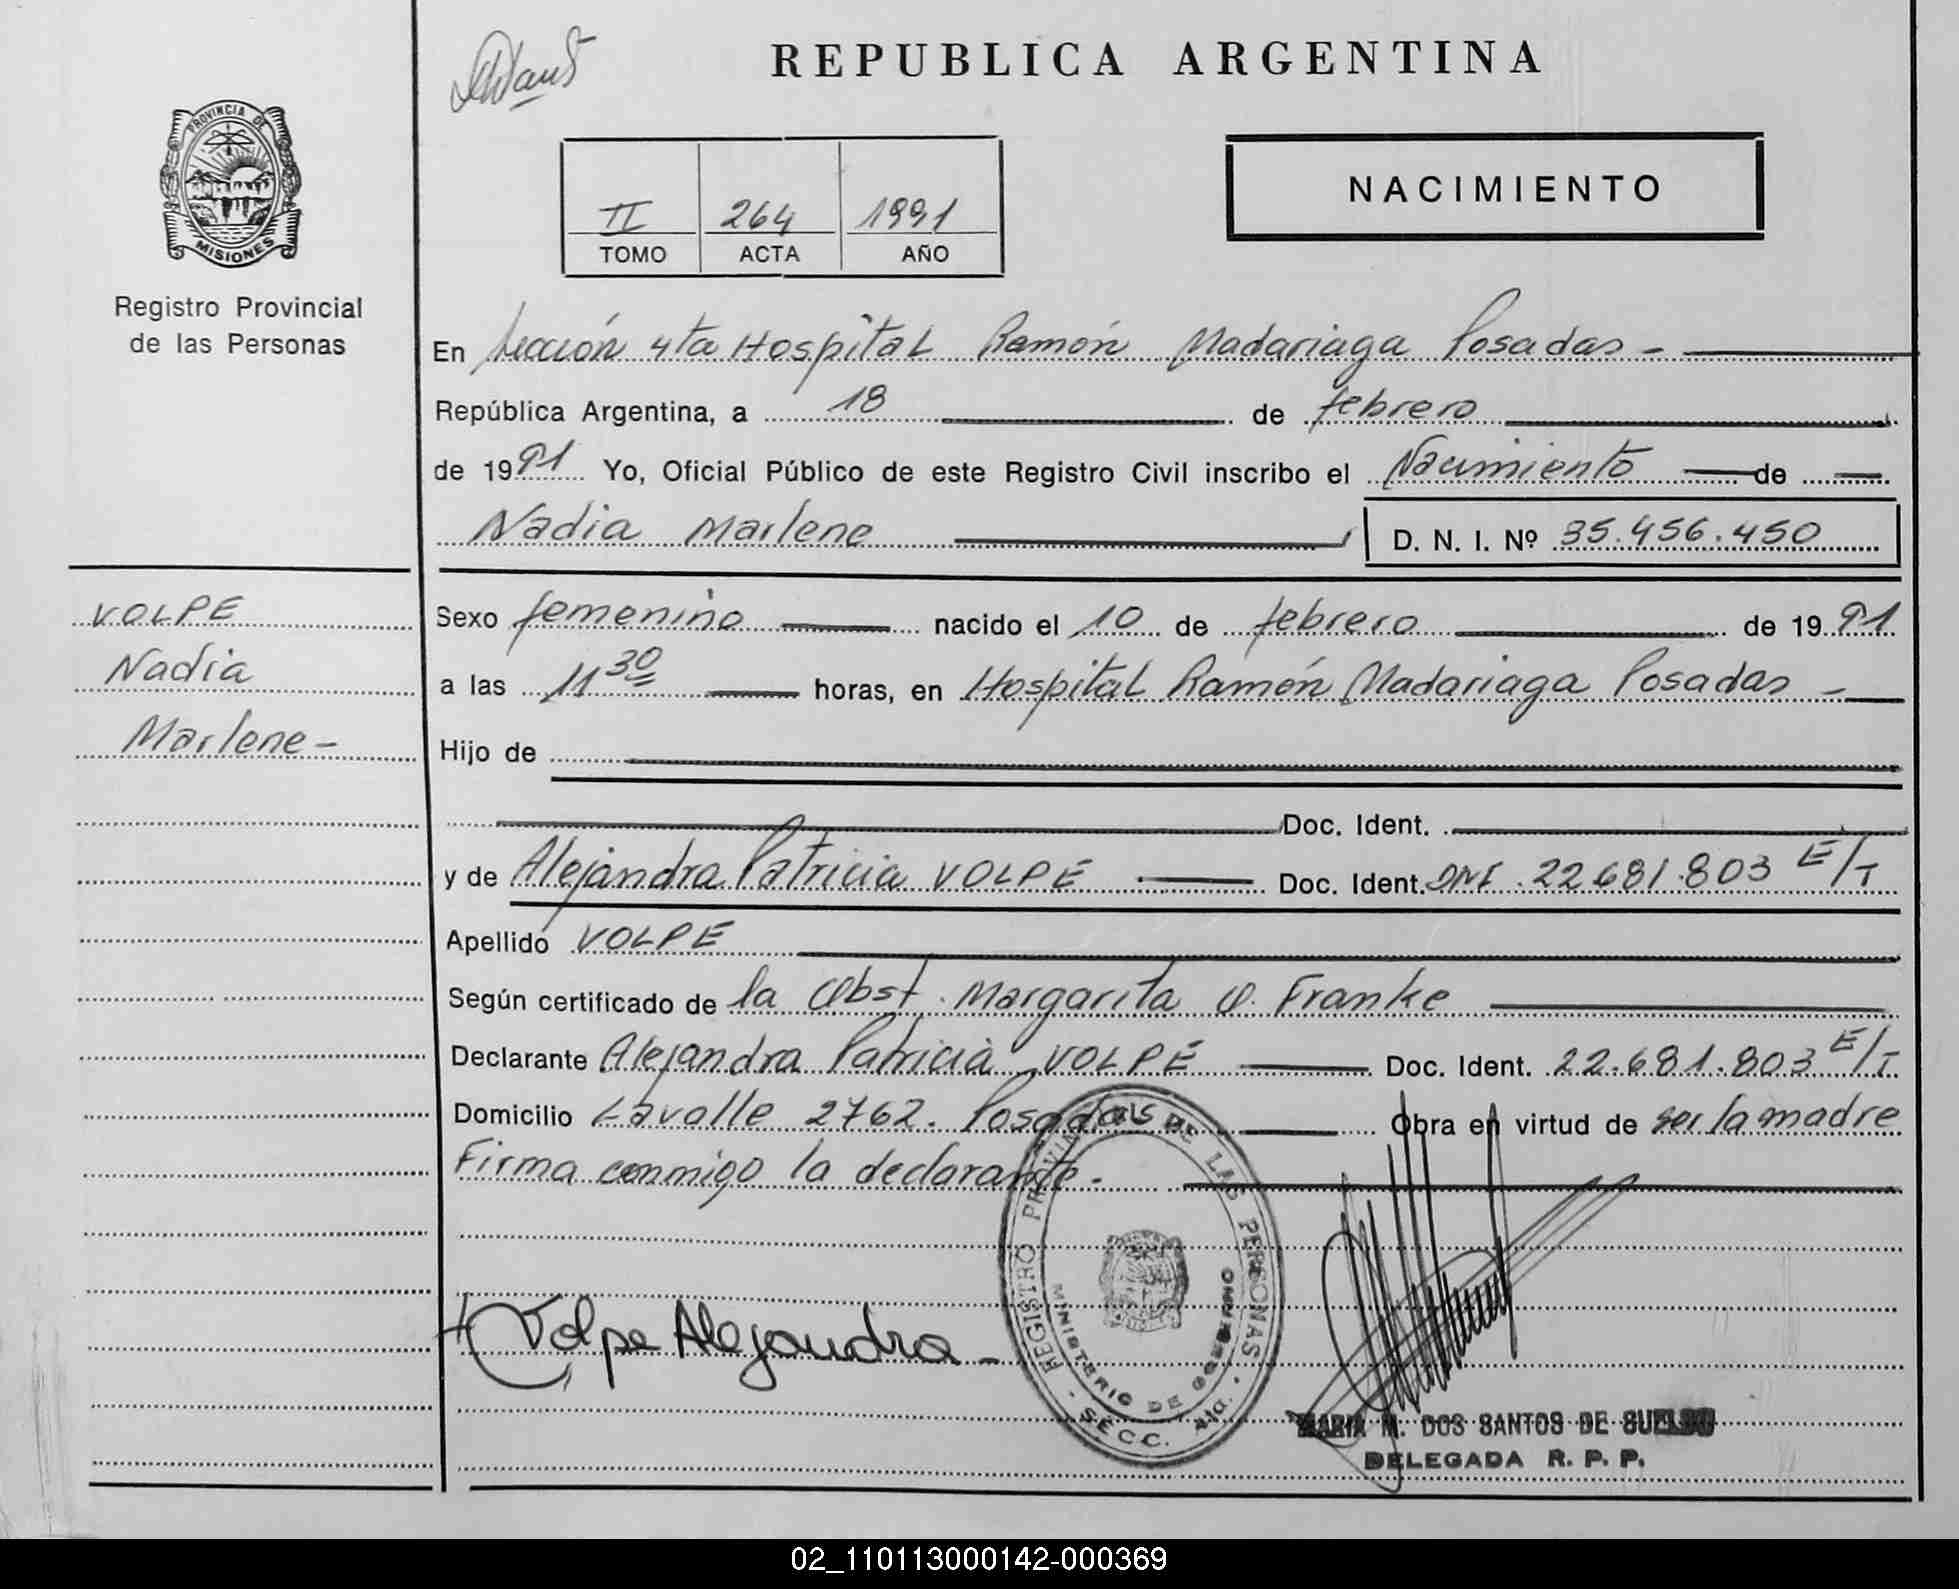 REPUBLICA ARGENTINA
PROVINCIA DE
MISIONES
Registro Provincial
de las Personas
NACIMIENTO
II 264 1991
TOMO ACTA AÑO
En Sección 4ta Hospital Ramón Madariaga Posadas -
República Argentina, a 18 de febrero
de 1991 Yo, Oficial Público de este Registro Civil inscribo el Nacimiento de
Nadia Marlene D. N. I. Nº 35.456.450
VOLPE
Nadia
Marlene -
Sexo femenino nacido el 10 de febrero de 1991
a las 11 30 horas, en Hospital Ramón Madariaga Posadas -
Hijo de
Doc. Ident.
y de Alejandra Patricia VOLPE Doc. Ident. DNI 22681.803 E/T
Apellido VOLPE
Según certificado de la Obst. Margarita O. Franke
Declarante Alejandra Patricia VOLPE Doc. Ident. 22.681.803 E/T
Domicilio Lavalle 2762. Posadas Obra en virtud de ser la madre
Firma conmigo la declarante.
Volpe Alejandra -
REGISTRO PROVINCIAL DE LAS PERSONAS
MINISTERIO DE GOBIERNO
SECC. 4ta.
MARIA M. DOS SANTOS DE
DELEGADA R. P. P.
02_110113000142-000369